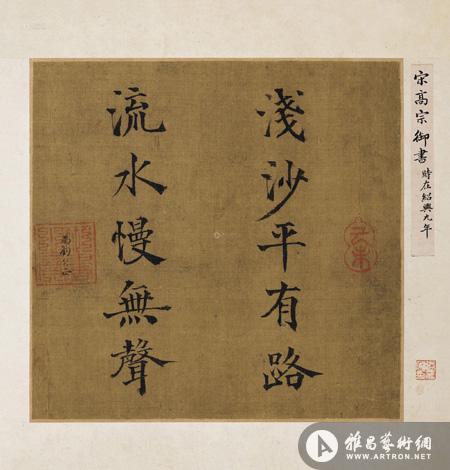 淺沙平有路
流水慢無聲
宋高宗御書 時在紹興九年
雅昌藝術網
WWW.ARTRON.NET